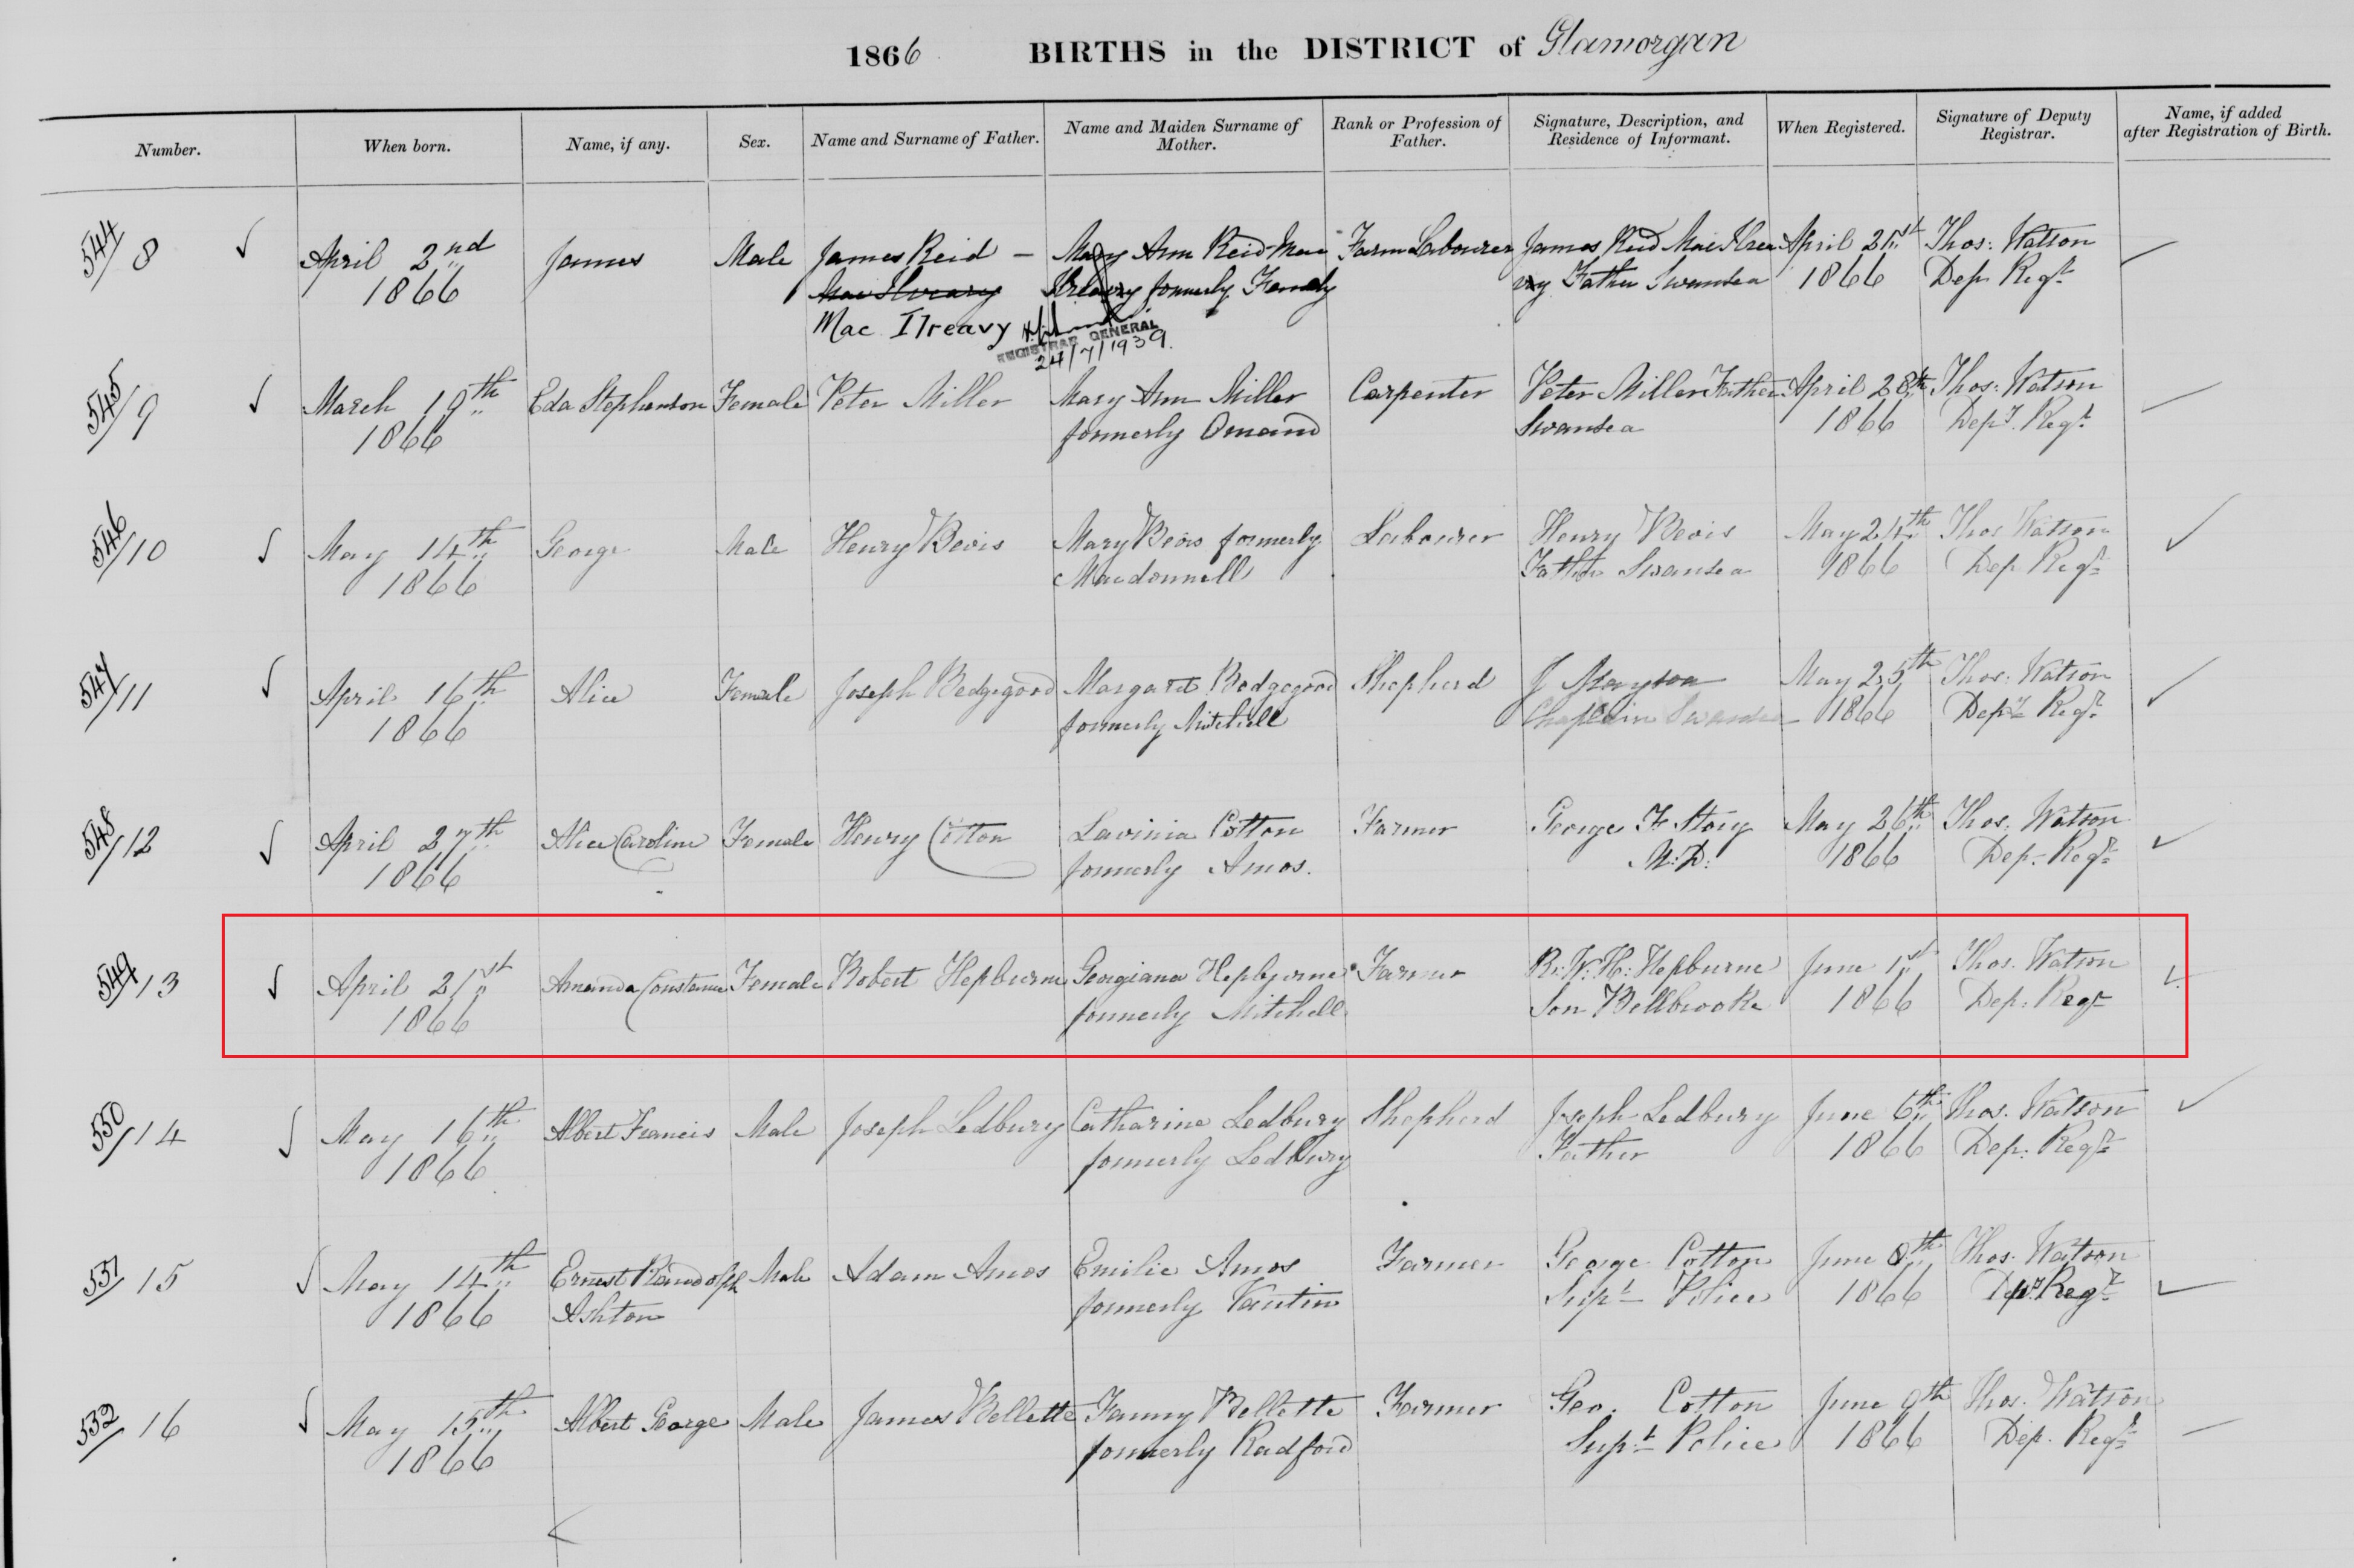 1866 BIRTHS in the DISTRICT of Glamorgan
Number. When born. Name, if any. Sex. Name and Surname of Father. Name and Maiden Surname of Mother. Rank or Profession of Father. Signature, Description, and Residence of Informant. When Registered. Signature of Deputy Registrar. Name, if added after Registration of Birth.
544/8 April 2nd James Male James Reid – Mary Ann Reid Mac Farm Labourer James Reid Mac Ilrea April 21st Thos: Watson
1866 formerly vy Father Swansea 1866 Dep Regr
Mac Ilreavy
REGISTRAR GENERAL
24/7/1939.
545/9 March 19th Eda Stephenson Female Peter Miller Mary Ann Miller Carpenter Peter Miller Father April 28th Thos: Watson
1866 formerly Omand Swansea 1866 Depy. Regr
546/10 May 14th George Male Henry Bevis Mary Bevis formerly Labourer Henry Bevis May 24th Thos Watson
1866 Macdonnell Father Swansea 1866 Dep Regr
547/11 April 16th Alice Female Joseph Bedgegood Margaret Bedgegood Shepherd J Mayson May 25th Thos: Watson
1866 formerly Mitchell Chaplain Swansea 1866 Depy Regr
548/12 April 27th Alice Caroline Female Henry Cotton Lavinia Cotton Farmer George F Story May 26th Thos: Watson
1866 formerly Amos. M:D: 1866 Dep. Regr
549/13 April 21st Amanda Constance Female Robert Hepburne Georgiana Hepburne Farmer R: W: H: Hepburne June 1st Thos. Watson
1866 formerly Mitchell Son Bellbrooke 1866 Dep: Regr
550/14 May 16th Albert Francis Male Joseph Ledbury Catharine Ledbury Shepherd Joseph Ledbury June 6th Thos. Watson
1866 formerly Ledbury Father 1866 Dep: Regr
551/15 May 14th Ernest Randolph Male Adam Amos Emilie Amos Farmer George Cotton June 8th Thos. Watson
1866 Ashton formerly Vautin Supt Police 1866 Depy Regr
552/16 May 15th Albert George Male James Bellette Fanny Bellette Farmer Geo. Cotton June 9th Thos. Watson
1866 formerly Radford Supt Police 1866 Dep. Regr